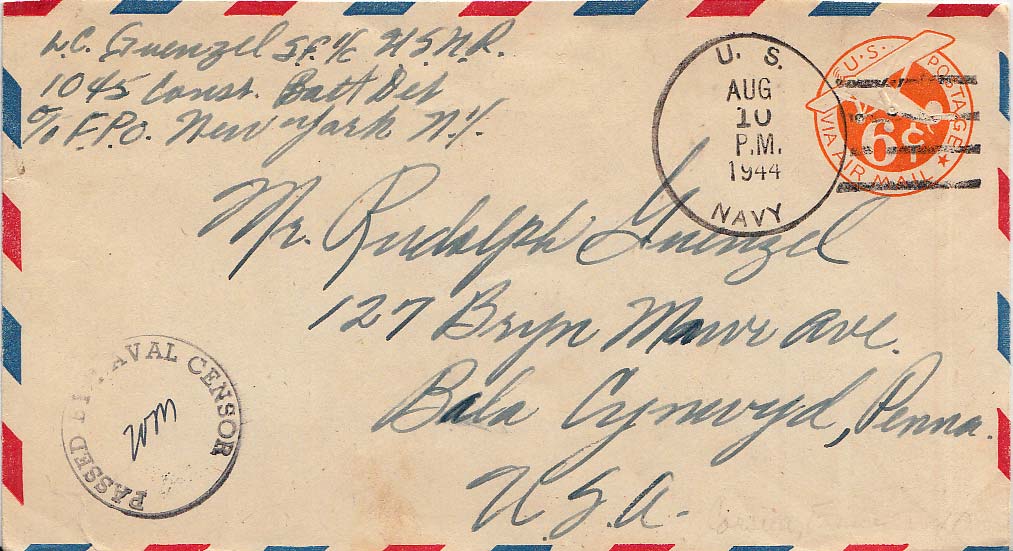 L.C. Guenzel S.F. 1/C U.S.N.R.
1045 Const. Batt Det
c/o F.P.O. New York N.Y.
U. S.
AUG
10
P.M.
1944
NAVY
U.S. POSTAGE
6¢
VIA AIR MAIL
Mr. Rudolph Guenzel
127 Bryn Mawr Ave.
Bala Cynwyd, Penna.
U.S.A.
PASSED BY NAVAL CENSOR